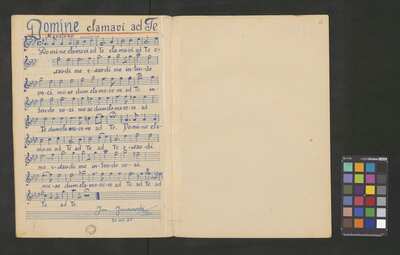 Domine clamavi ad Te
Domine clamavi ad te clamavi ad te e-
xaudi me exaudi me intende
voci meae dum clamavero ad te in-
tende voci meae dum clamavero ad
Te dum clamavero ad Te. Domine cla-
mavi ad Te ad Te ad Te exaudi
me exaudi me intende voci
meae dum clamavero ad Te ad te ad
Te ad te